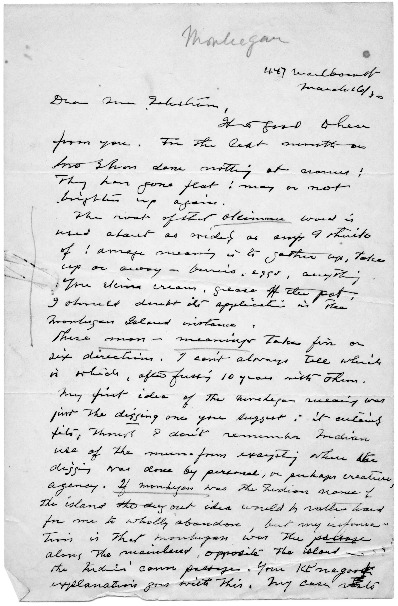 Monhegan
447 Marlboro St
March 26/30
Dear Mrs.
It is good to hear
from you. For the last month or
two I have done nothing at names!
They have gone flat! may or not
brighten up again.
The root of that word is
used about as widely as any I think
of! average meaning is to gather up, take
up or away – berries, eggs, anything
You skim cream, grease the pot.
I should doubt its application in the
Monhegan Island instance.
These meanings take five or
six directions. I can't always tell which
is which, after fussing 10 years with them.
My first idea of the Monhegan meaning was
just the digging one you suggest: it certainly
fits, though I don't remember Indian
use of the form excepting where the
digging was done by personal, or perhaps creature
agency. If Monhegan was the Indian name of
the island the dug out idea would be rather hard
for me to wholly abandon, but my informa-
tion is that Monhegan was the passage
along the mainland, opposite the island —
the Indian canoe passage. Your
explanation goes with this. My case rests